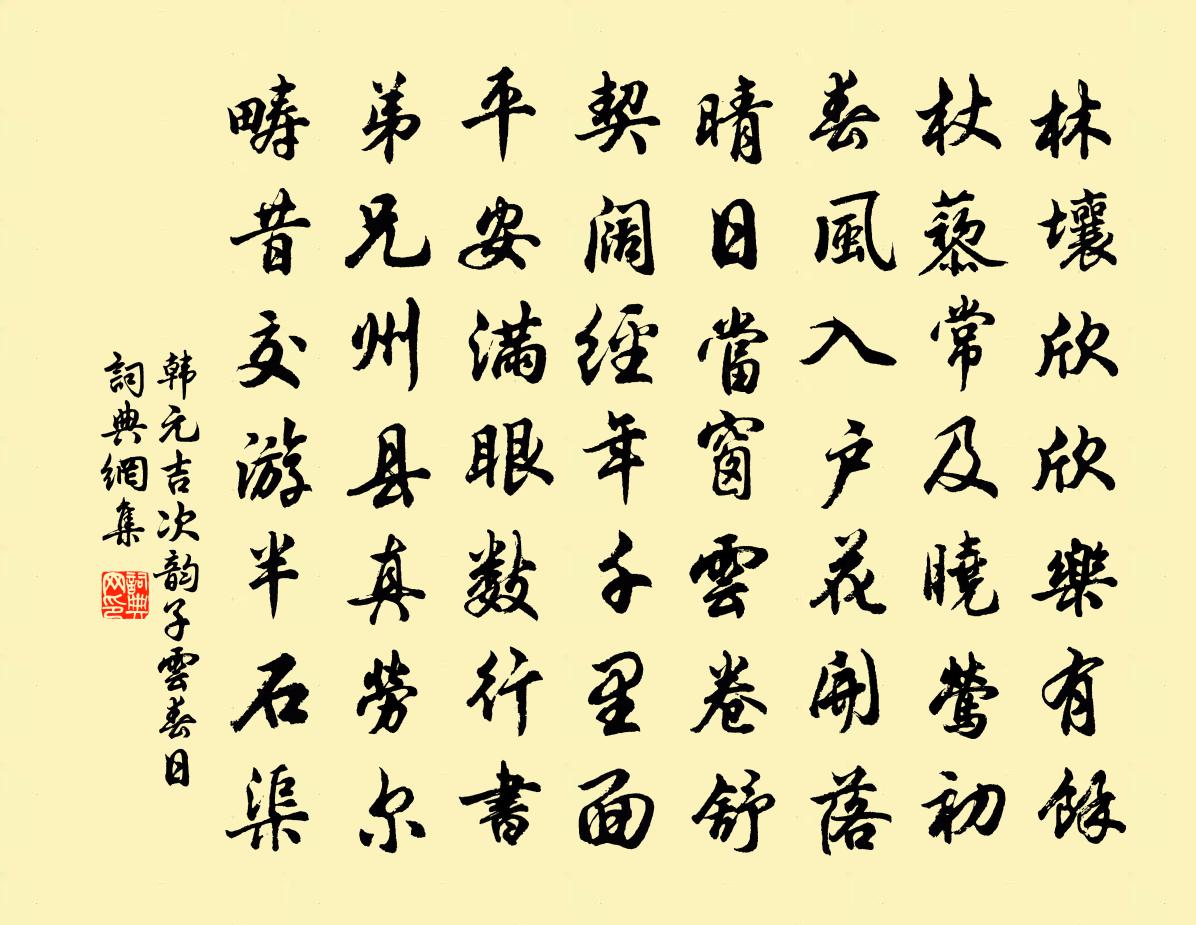 林壤欣欣樂有餘
杖藜常及曉鶯初
春風入户花開落
晴日當窗雲卷舒
契阔經年千里面
平安滿眼數行書
弟兄州县真勞尔
疇昔交游半石渠
韩元吉次韵子雲春日
詞典網集
詞典网印